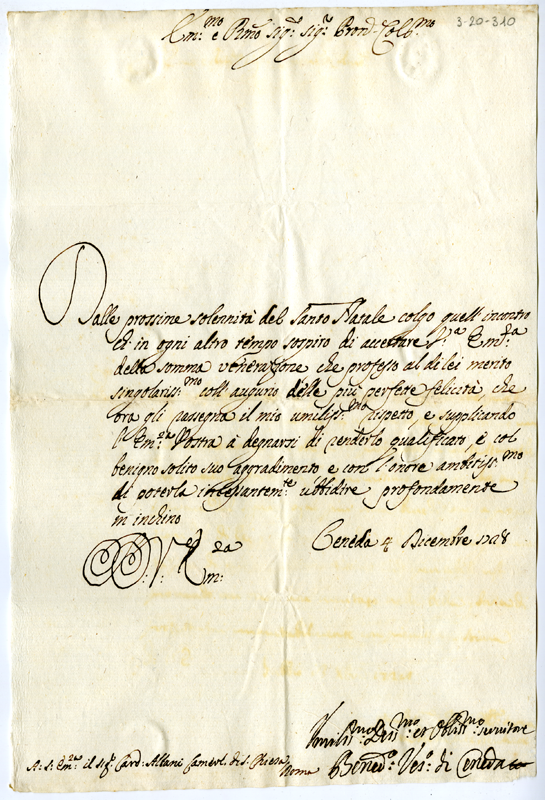 3-20-310
Em:mo e Rmo Sig:r Sig:r Pron. Col:mo
Dalle prossime solennità del Santo Natale colgo quell'incontro
ch'in ogni altro tempo sospiro di accertare V:a Em:za
della somma veneraz̃one che professo al di lei merito
singolariss:mo coll'augurio delle più perfete felicità, che
ora gli rassegna il mio umiliss:mo rispeto, e suplicando
l'Em:za Vostra à degnarsi di renderlo qualificato, è col
benigno solito suo aggradimento e con l'onore ambitiss:mo
di poterla incessantem:te ubbidire profondamente
m'inchino
Di V: Em:za
Ceneda 4 Dicembre 1728
Umiliss:mo Dev:mo et Obblig:mo servitore
Bened:o Ves:o di Ceneda
A: S: Em:za il Sig:r Card: Albani Camerl. di S: Chiesa Roma